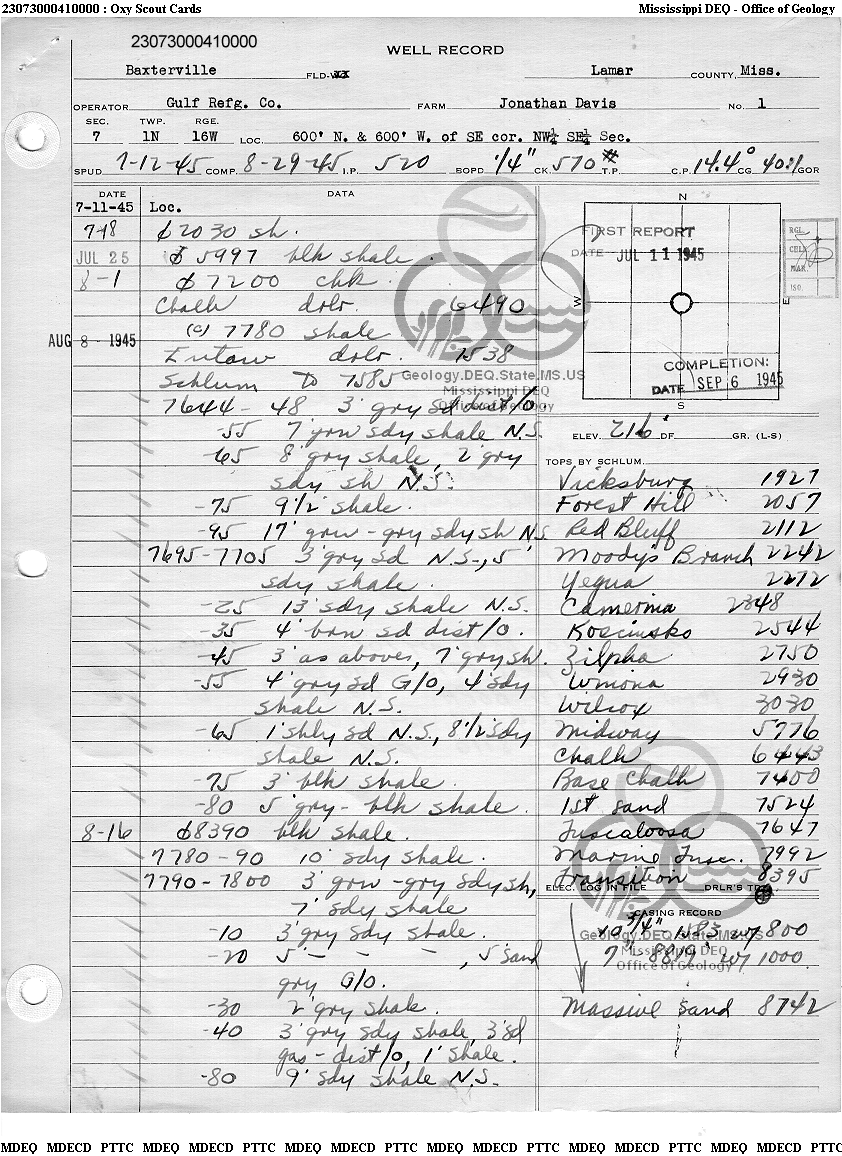 23073000410000 : Oxy Scout Cards
Mississippi DEQ - Office of Geology
23073000410000
WELL RECORD
Baxterville FLD-WX Lamar COUNTY, Miss.
OPERATOR Gulf Refg. Co. FARM Jonathan Davis No. 1
SEC. TWP. RGE.
7 1N 16W LOC. 600' N. & 600' W. of SE cor. NW¼ SE¼ Sec.
SPUD 7-12-45 COMP. 8-29-45 I.P. 520 BOPD 1/4" CK. 570# T.P. C.P. 14.4° CG 40:1 GOR
DATE DATA
7-11-45 Loc.
7-18 2030 sh.
JUL 25 5997 blk shale.
8-1 7200 chk.
Chalk drlr. 6490
(C) 7780 shale
AUG 8 - 1945
Eutaw drlr. 7538
Schlum TD 7585
7644-48 3' gry sd dist/o
-55 7' grn sdy shale N.S.
-65 8' gry shale, 2' gry
sdy sh N.S.
-75 9½' shale.
-95 17' grn-gry sdy sh NS
7695-7705 3' gry sd N.S., 5'
sdy shale.
-25 13' sdy shale N.S.
-35 4' brn sd dist/o.
-45 3' as above, 7' gry sh.
-55 4' gry sd G/O, 4' sdy
shale N.S.
-65 1' shly sd N.S., 8½' sdy
shale N.S.
-75 3' blk shale.
-80 5' gry-blk shale.
8-16 8390 blk shale.
7780-90 10' sdy shale.
7790-7800 3' grn-gry sdy sh,
7' sdy shale
-10 3' gry sdy shale.
-20 5' - - -, 5' sand
gry G/O.
-30 2' gry shale.
-40 3' gry sdy shale, 3' sd
gas-dist/o, 1' shale.
-80 9' sdy shale N.S.
N
W
E
S
FIRST REPORT
DATE JUL 11 1945
COMPLETION:
DATE SEP 6 1945
RGL.
CHK.
MAR.
ISO.
ELEV. 216' DF GR. (L-S)
TOPS BY SCHLUM.
Vicksburg 1927
Forest Hill 2057
Red Bluff 2112
Moody's Branch 2242
Yegua 2272
Camerina 2348
Kosciusko 2544
Zilpha 2750
Winona 2930
Wilcox 3030
Midway 5776
Chalk 6443
Base Chalk 7400
1st sand 7524
Tuscaloosa 7647
Marine Tusc. 7992
Transition 8395
ELEC. LOG IN FILE DRLR'S TD
CASING RECORD
10 3/4" 1183' w/ 800
7" 8819' w/ 1000
Massive Sand 8742
Geology.DEQ.State.MS.US
Mississippi DEQ
Office of Geology
Geology.DEQ.State.MS.US
Mississippi DEQ
Office of Geology
MDEQ MDECD PTTC MDEQ MDECD PTTC MDEQ MDECD PTTC MDEQ MDECD PTTC MDEQ MDECD PTTC MDEQ MDECD PTTC